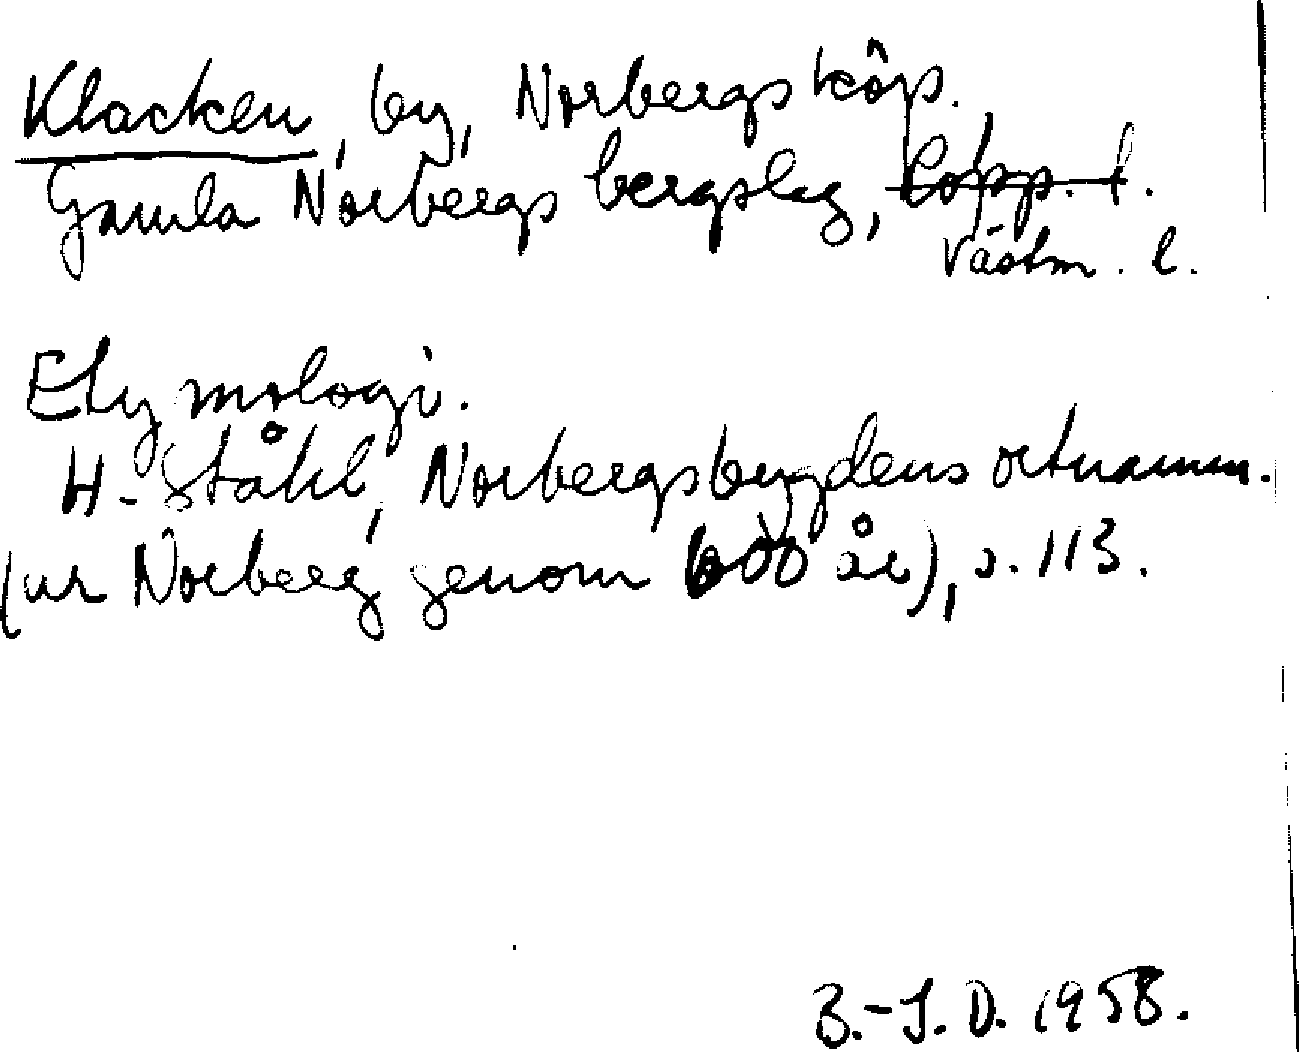 Klacken, by, Norbergs köp.
Gamla Norbergs bergslag, Kopp. l.
Västm. l.
Etymologi.
H. Ståhl, Norbergsbygdens ortnamn.
(ur Norberg genom 600 år), s. 113.
B.-J. D. 1958.